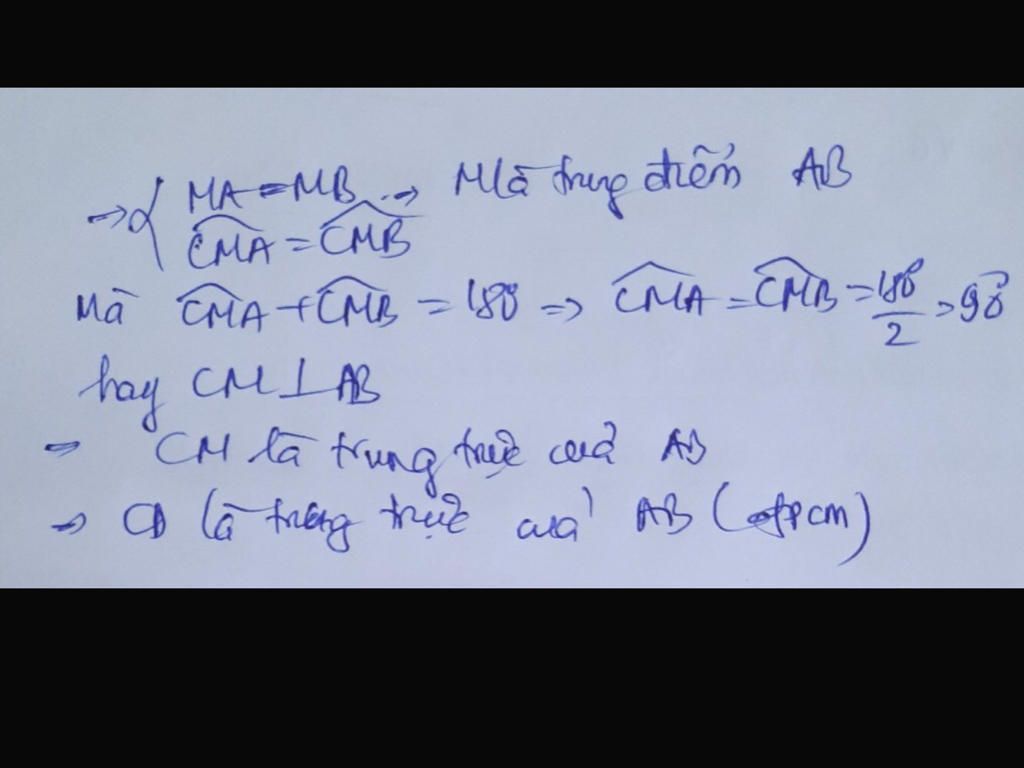 => { MA = MB -> M là trung điểm AB
\widehat{CMA} = \widehat{CMB}
Mà \widehat{CMA} + \widehat{CMB} = 180° => \widehat{CMA} = \widehat{CMB} = \frac{180°}{2} = 90°
hay CM ⊥ AB
=> CM là trung trực của AB
=> CD là trung trực của AB (đpcm)